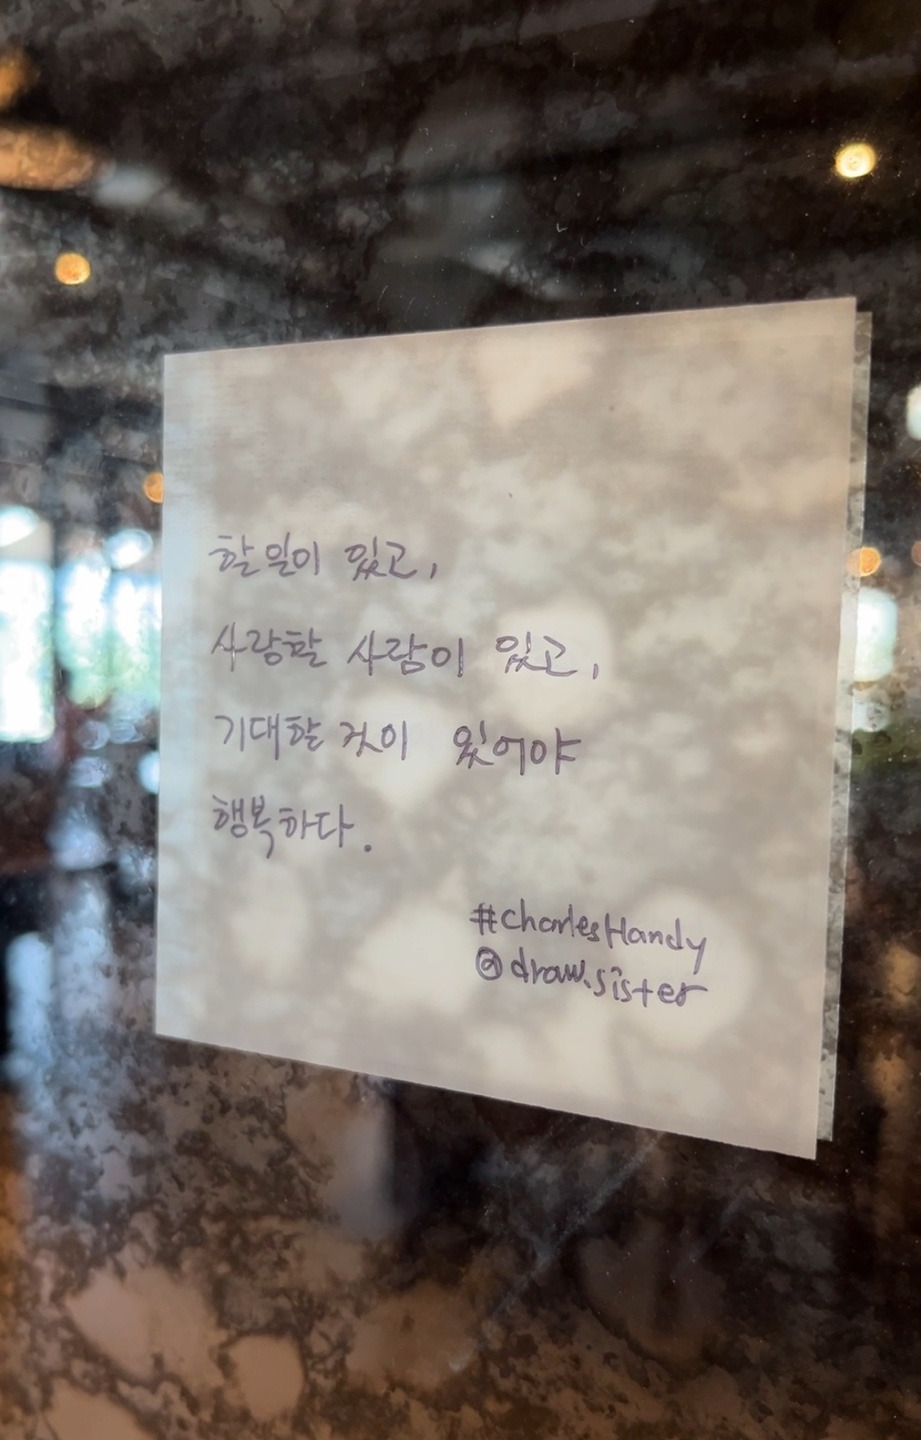 할 일이 있고,
사랑할 사람이 있고,
기대할 것이 있어야
행복하다.
#charlesHandy
@draw.sister